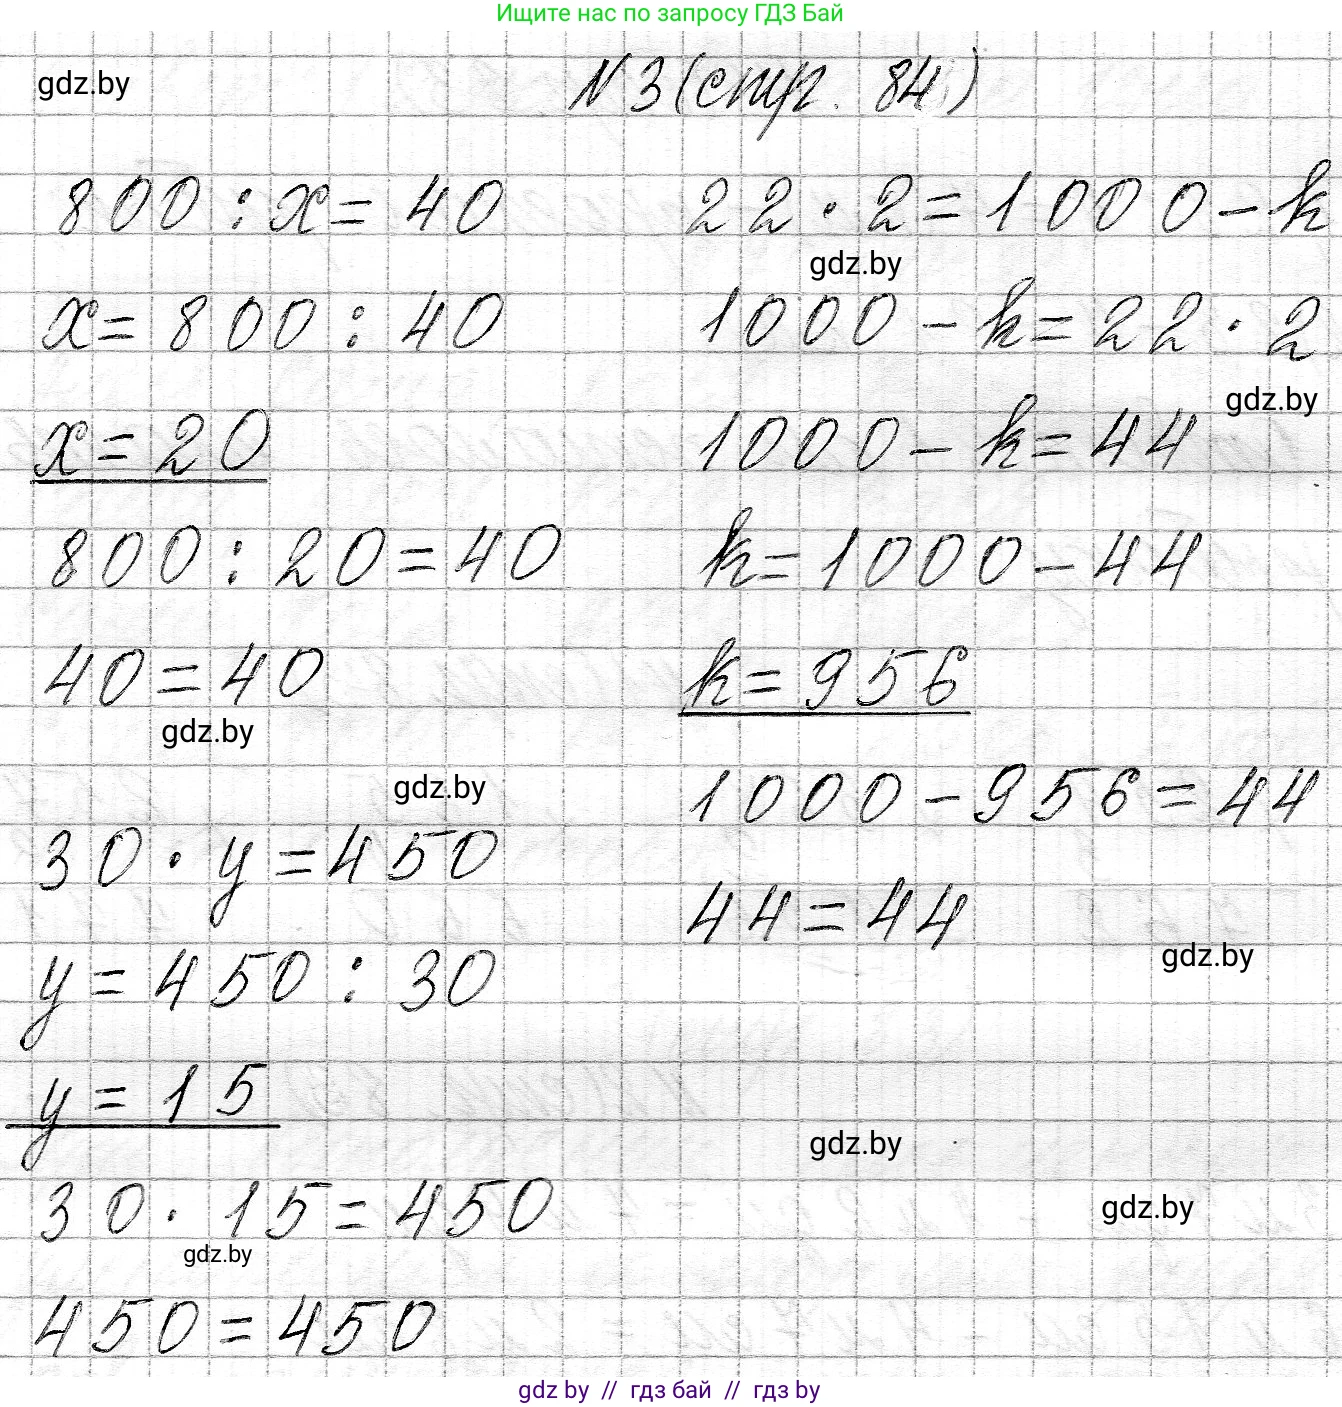 Ищите нас по запросу ГДЗ Бай
gdz.by
N 3 (стр. 84)
800 : x = 40
x = 800 : 40
x = 20
800 : 20 = 40
40 = 40
gdz.by
gdz.by
30 · y = 450
y = 450 : 30
y = 15
30 · 15 = 450
gdz.by
450 = 450
22 · 2 = 1000 - k
gdz.by
1000 - k = 22 · 2
gdz.by
1000 - k = 44
k = 1000 - 44
k = 956
1000 - 956 = 44
44 = 44
gdz.by
gdz.by
gdz.by
gdz by // гдз бай // гдз by